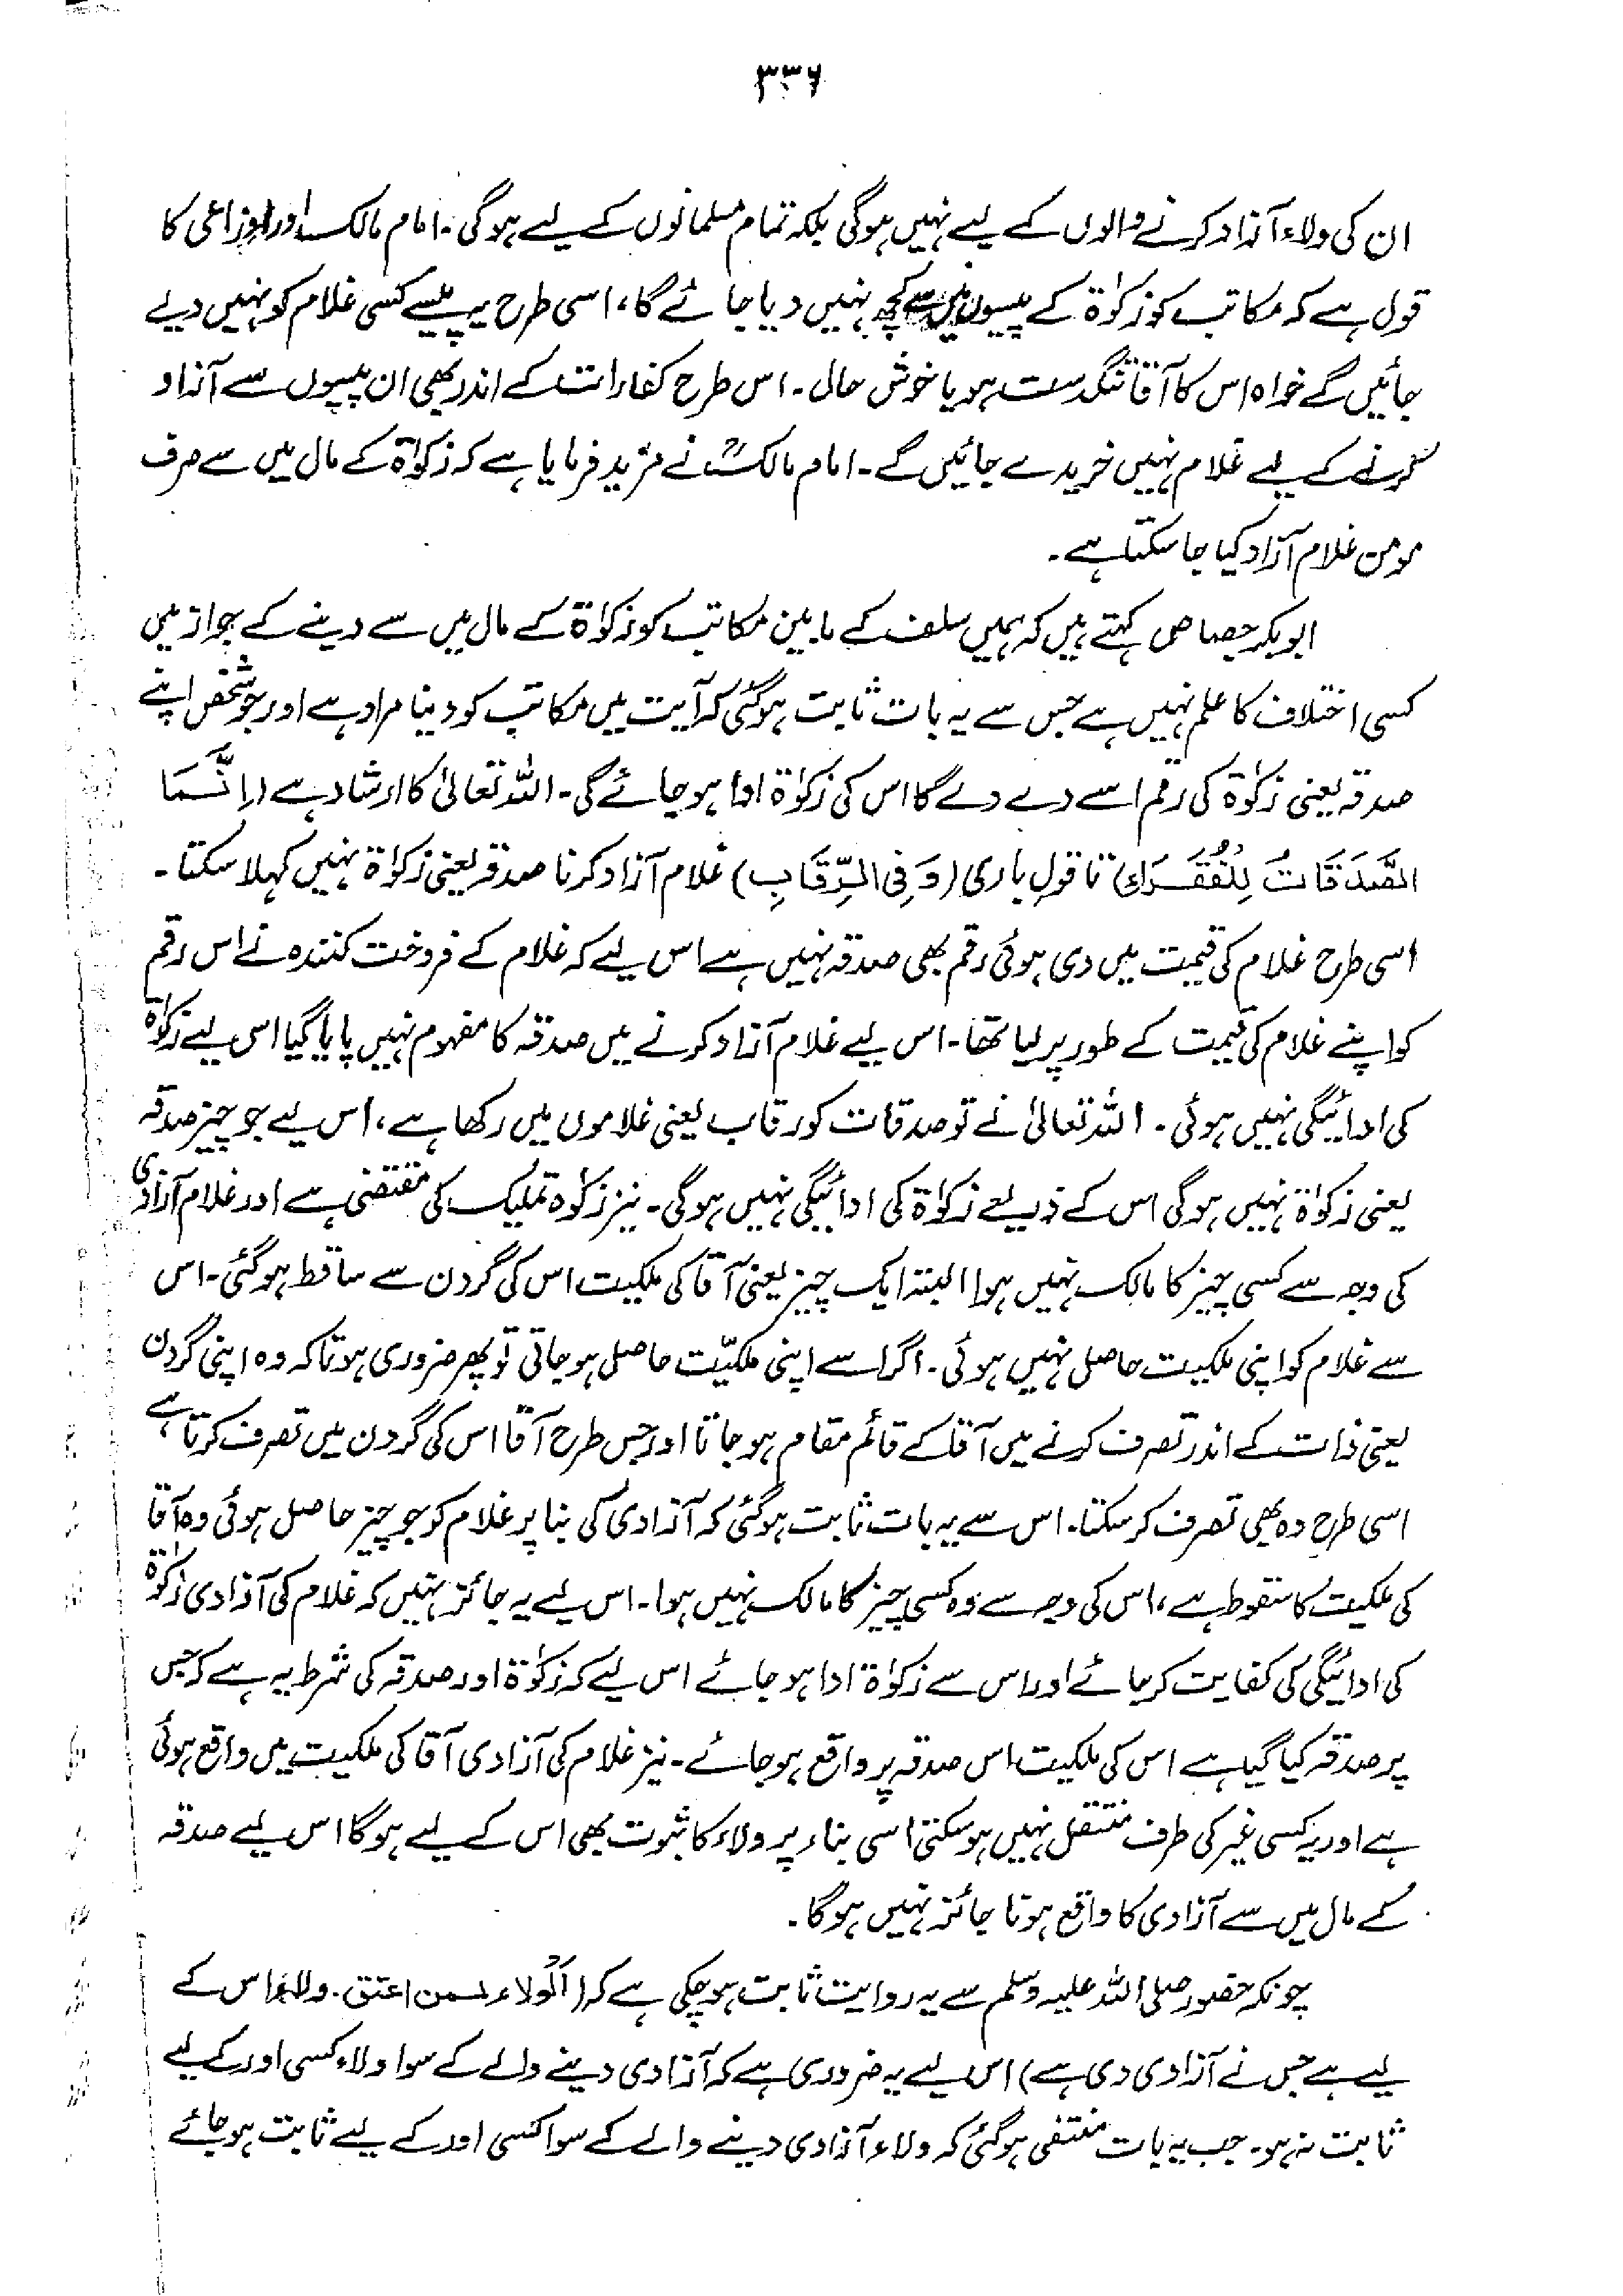 ۳۳۶
ان کی ولاء آزاد کرنے والوں کے لیے نہیں ہوگی بلکہ تمام مسلمانوں کے لیے ہوگی۔ امام مالک اور اوزاعی کا
قول ہے کہ مکاتب کو زکوٰۃ کے پیسوں میں سے کچھ نہیں دیا جائے گا، اسی طرح یہ پیسے کسی غلام کو نہیں دیے
جائیں گے خواہ اس کا آقا تنگدست ہو یا خوش حالی۔ اس طرح کفارات کے اندر بھی ان پیسوں سے آزاد
کرنے کے لیے غلام نہیں خریدے جائیں گے۔ امام مالکؒ نے مزید فرمایا ہے کہ زکوٰۃ کے مال میں سے صرف
مومن غلام آزاد کیا جا سکتا ہے۔
ابوبکر جصاص کہتے ہیں کہ ہمیں سلف کے مابین مکاتب کو زکوٰۃ کے مال میں سے دینے کے جواز میں
کسی اختلاف کا علم نہیں ہے جس سے یہ بات ثابت ہوگئی کہ آیت میں مکاتب کو دینا مراد ہے اور جو شخص اپنے
صدقہ یعنی زکوٰۃ کی رقم اسے دے دے گا اس کی زکوٰۃ ادا ہو جائے گی۔ اللہ تعالیٰ کا ارشاد ہے (اِنَّمَا
الصَّدَقَاتُ لِلْفُقَرَاءِ تا قول باری (وَفِی الرِّقَابِ) غلام آزاد کرنا صدقہ یعنی زکوٰۃ نہیں کہلا سکتا۔
اسی طرح غلام کی قیمت میں دی ہوئی رقم بھی صدقہ نہیں ہے اس لیے کہ غلام کے فروخت کنندہ نے اس رقم
کو اپنے غلام کی قیمت کے طور پر لیا تھا۔ اس لیے غلام آزاد کرنے میں صدقہ کا مفہوم نہیں پایا گیا اس لیے زکوٰۃ
کی ادائیگی نہیں ہوئی۔ اللہ تعالیٰ نے تو صدقات کو رقاب یعنی غلاموں میں رکھا ہے، اس لیے جو چیز صدقہ
یعنی زکوٰۃ نہیں ہوگی اس کے ذریعے زکوٰۃ کی ادائیگی نہیں ہوگی۔ نیز زکوٰۃ تملیک کی مقتضی ہے اور غلام آزادی
کی وجہ سے کسی چیز کا مالک نہیں ہوا البتہ ایک چیز یعنی آقا کی ملکیت اس کی گردن سے ساقط ہوگئی۔ اس
سے غلام کو اپنی ملکیت حاصل نہیں ہوئی۔ اگر اسے اپنی ملکیّت حاصل ہو جاتی تو پھر ضروری ہوتا کہ وہ اپنی گردن
یعنی ذات کے اندر تصرف کرنے میں آقا کے قائم مقام ہو جاتا اور جس طرح آقا اس کی گردن میں تصرف کرتا ہے
اسی طرح وہ بھی تصرف کر سکتا۔ اس سے یہ بات ثابت ہوگئی کہ آزادی کی بنا پر غلام کو جو چیز حاصل ہوئی وہ آقا
کی ملکیت کا سقوط ہے، اس کی وجہ سے وہ کسی چیز کا مالک نہیں ہوا۔ اس لیے یہ جائز نہیں کہ غلام کی آزادی زکوٰۃ
کی ادائیگی کی کفایت کر جائے اور اس سے زکوٰۃ ادا ہو جائے اس لیے کہ زکوٰۃ اور صدقہ کی شرط یہ ہے کہ جس
پر صدقہ کیا گیا ہے اس کی ملکیت اس صدقہ پر واقع ہو جائے۔ نیز غلام کی آزادی آقا کی ملکیت میں واقع ہوئی
ہے اور یہ کسی غیر کی طرف منتقل نہیں ہو سکتی اسی بناء پر ولاء کا ثبوت بھی اس کے لیے ہوگا اس لیے صدقہ
کے مال میں سے آزادی کا واقع ہونا جائز نہیں ہوگا۔
چونکہ حضور صلی اللہ علیہ وسلم سے یہ روایت ثابت ہو چکی ہے کہ (اَلْولاء لمن اعتق۔ ولاء اس کے
لیے ہے جس نے آزادی دی ہے) اس لیے یہ ضروری ہے کہ آزادی دینے والے کے سوا ولاء کسی اور کے لیے
ثابت نہ ہو۔ جب یہ بات منتفی ہوگئی کہ ولاء آزادی دینے والے کے سوا کسی اور کے لیے ثابت ہو جائے